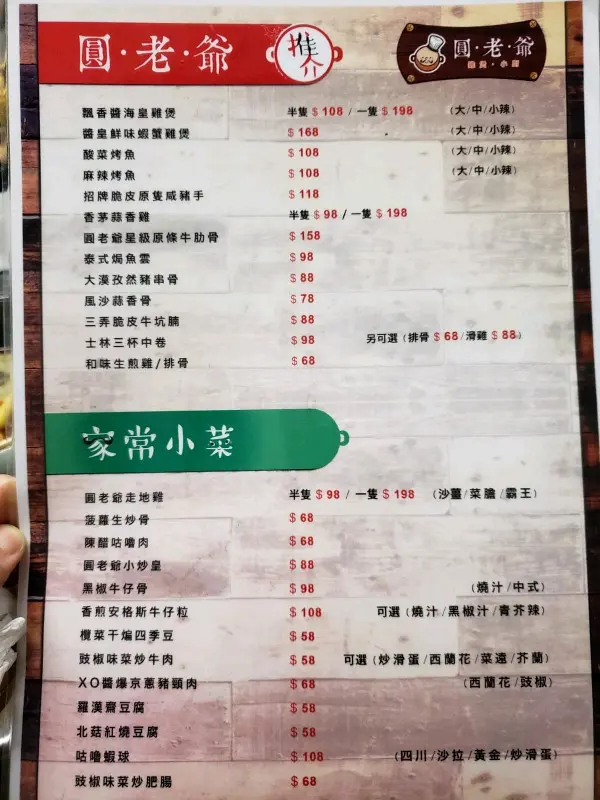 圓·老·爺 推介
圓·老·爺
飄香醬海皇雞煲 半隻 $108 / 一隻 $198 (大/中/小辣)
醬皇鮮味蝦蟹雞煲 $168 (大/中/小辣)
酸菜烤魚 $108 (大/中/小辣)
麻辣烤魚 $108 (大/中/小辣)
招牌脆皮原隻咸豬手 $118
香茅蒜香雞 半隻 $98 / 一隻 $198
圓老爺星級原條牛肋骨 $158
泰式焗魚雲 $98
大漠孜然豬串骨 $88
風沙蒜香骨 $78
三弄脆皮牛坑腩 $88
士林三杯中卷 $98 另可選 (排骨 $68/滑雞 $88)
和味生煎雞/排骨 $68
家常小菜
圓老爺走地雞 半隻 $98 / 一隻 $198 (沙薑/菜膽/霸王)
菠蘿生炒骨 $68
陳醋咕嚕肉 $68
圓老爺小炒皇 $88
黑椒牛仔骨 $98 (燒汁/中式)
香煎安格斯牛仔粒 $108 可選 (燒汁/黑椒汁/青芥辣)
欖菜干煸四季豆 $58
豉椒味菜炒牛肉 $58 可選 (炒滑蛋/西蘭花/菜遠/芥蘭)
XO醬爆京蔥豬頸肉 $68 (西蘭花/豉椒)
羅漢齋豆腐 $58
北菇紅燒豆腐 $58
咕嚕蝦球 $108 (四川/沙拉/黃金/炒滑蛋)
豉椒味菜炒肥腸 $68